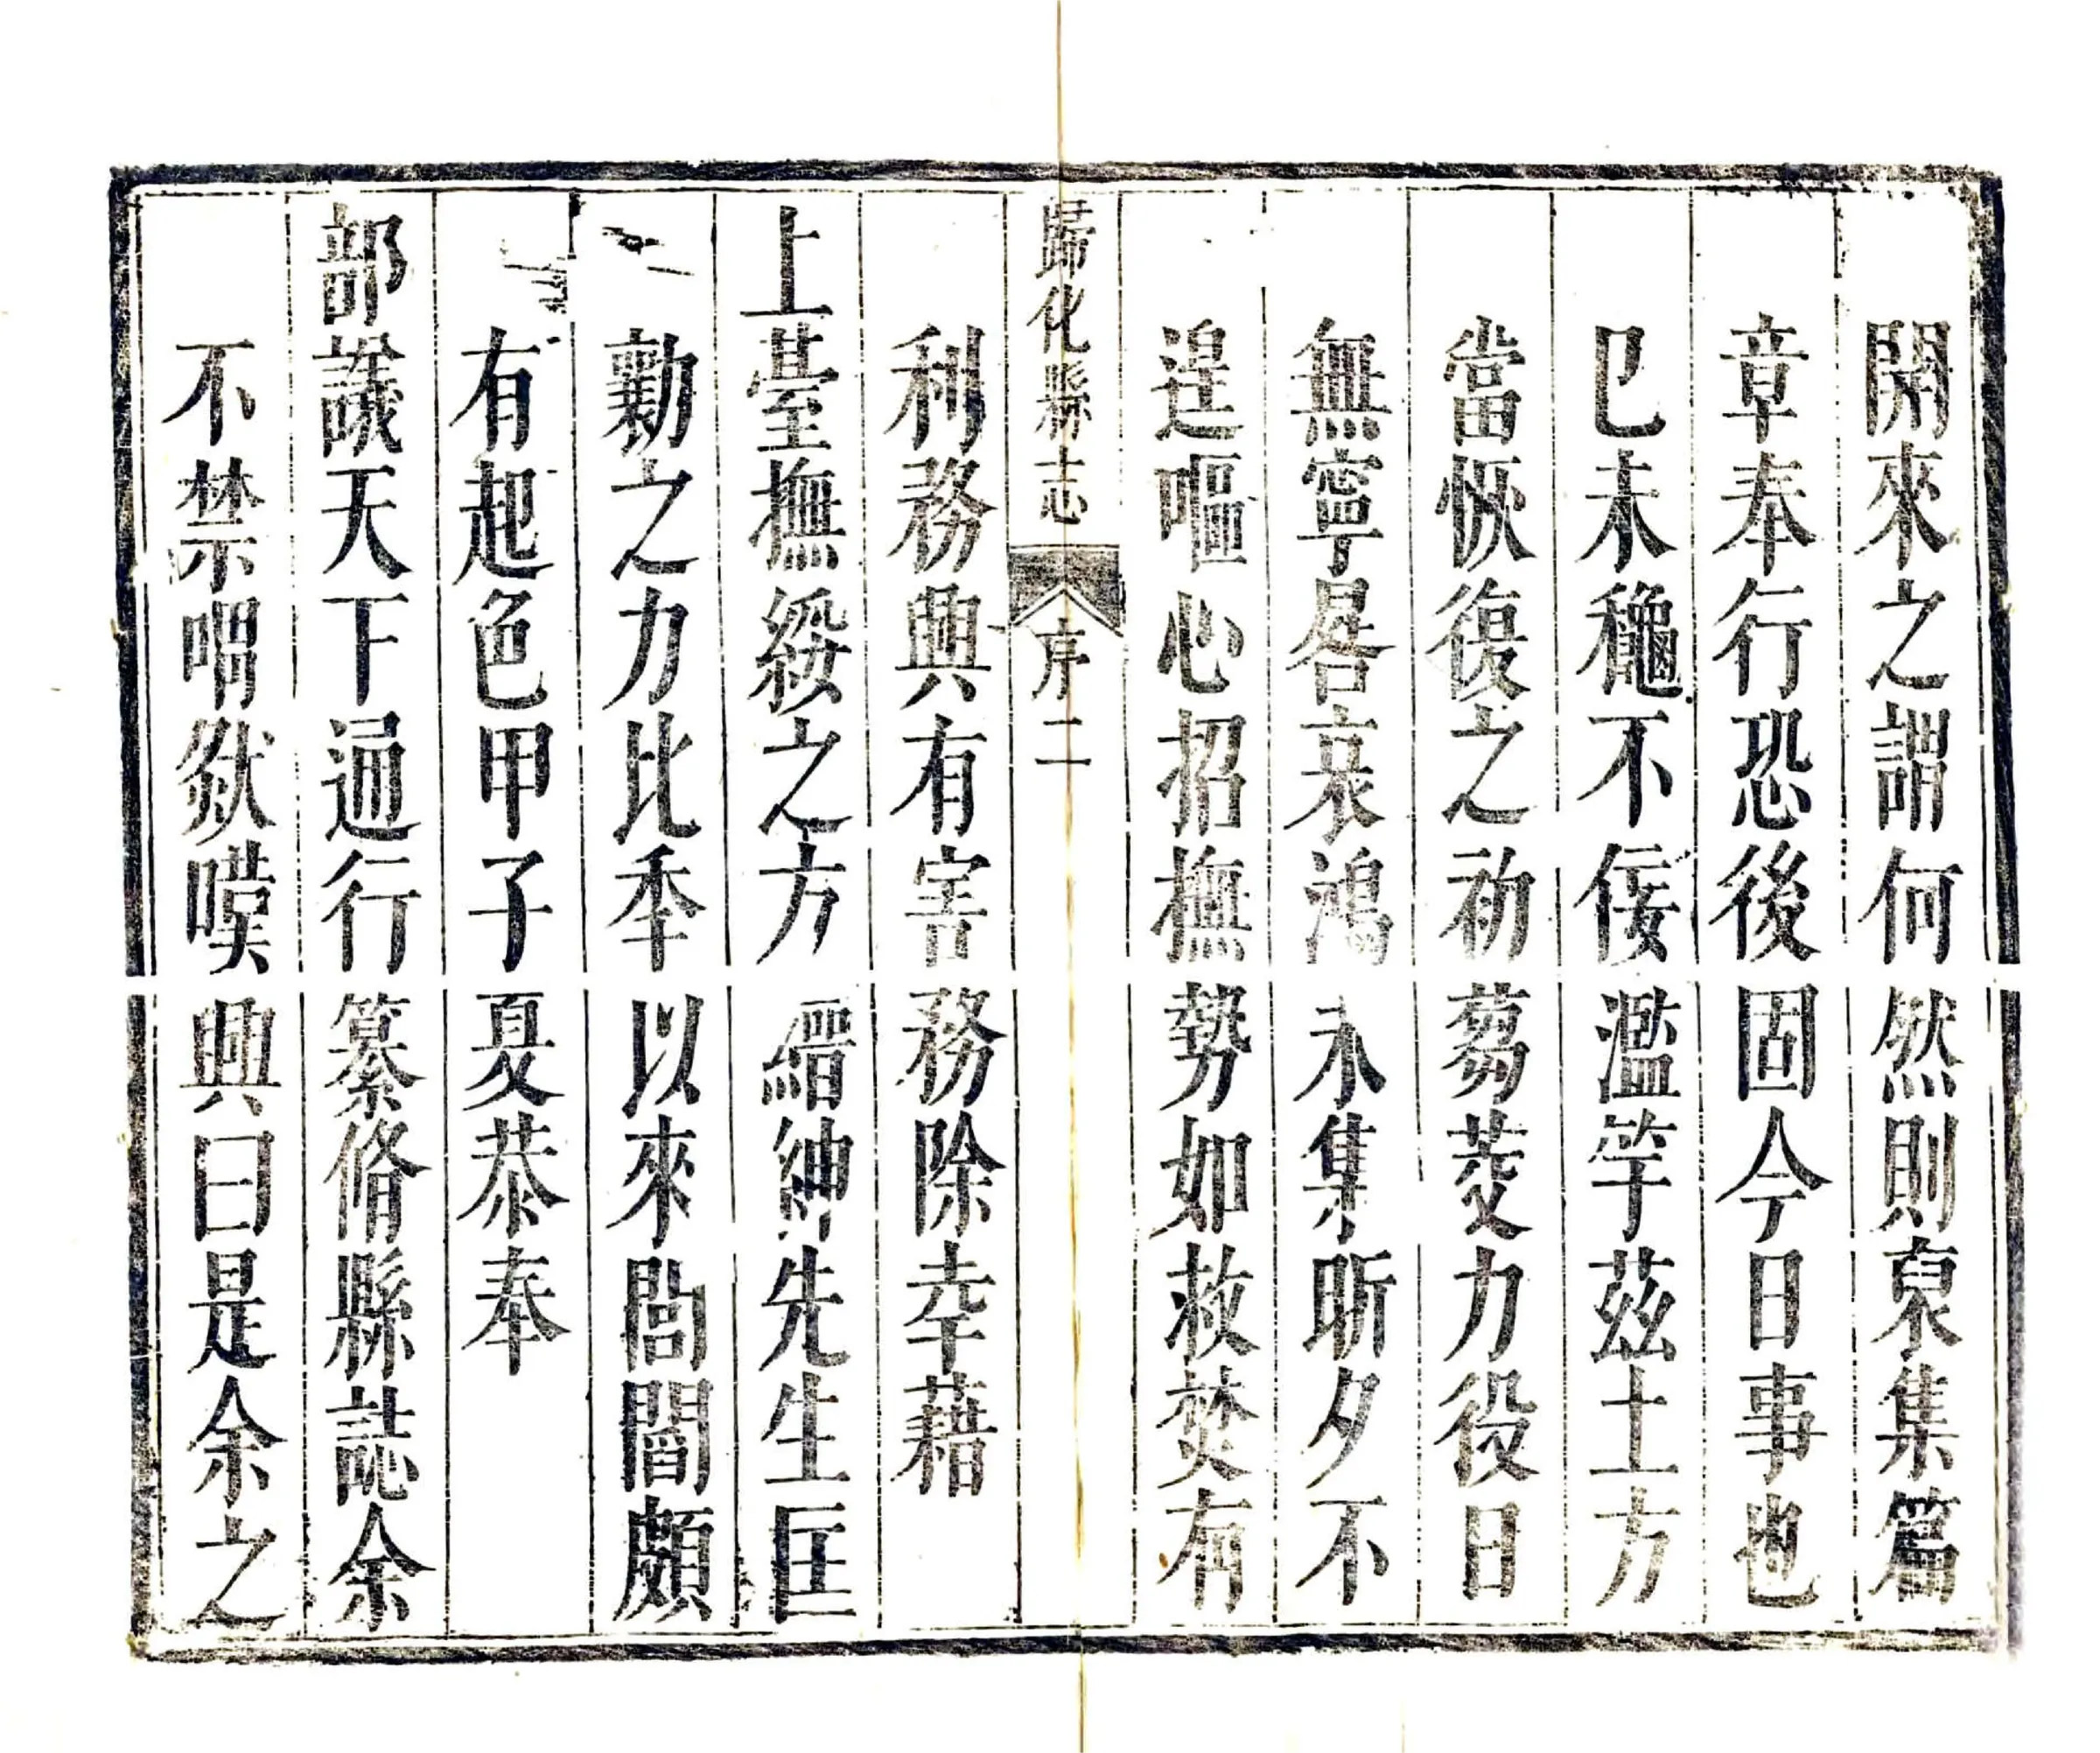 開來之謂何然則裒集篇
章奉行恐後固今日事也
已未龝不佞濫竽茲土方
當恢復之初蒭茭力役日
無寧晷哀鴻未集昕夕不
遑嘔心招撫勢如救焚有
歸化縣志
序二
利務興有害務除幸藉
上臺撫綏之方縉紳先生匡
勷之力比年以來閭閻頗
有起色甲子夏恭奉
部議天下通行纂脩縣誌余
不禁喟然嘆興曰是余之